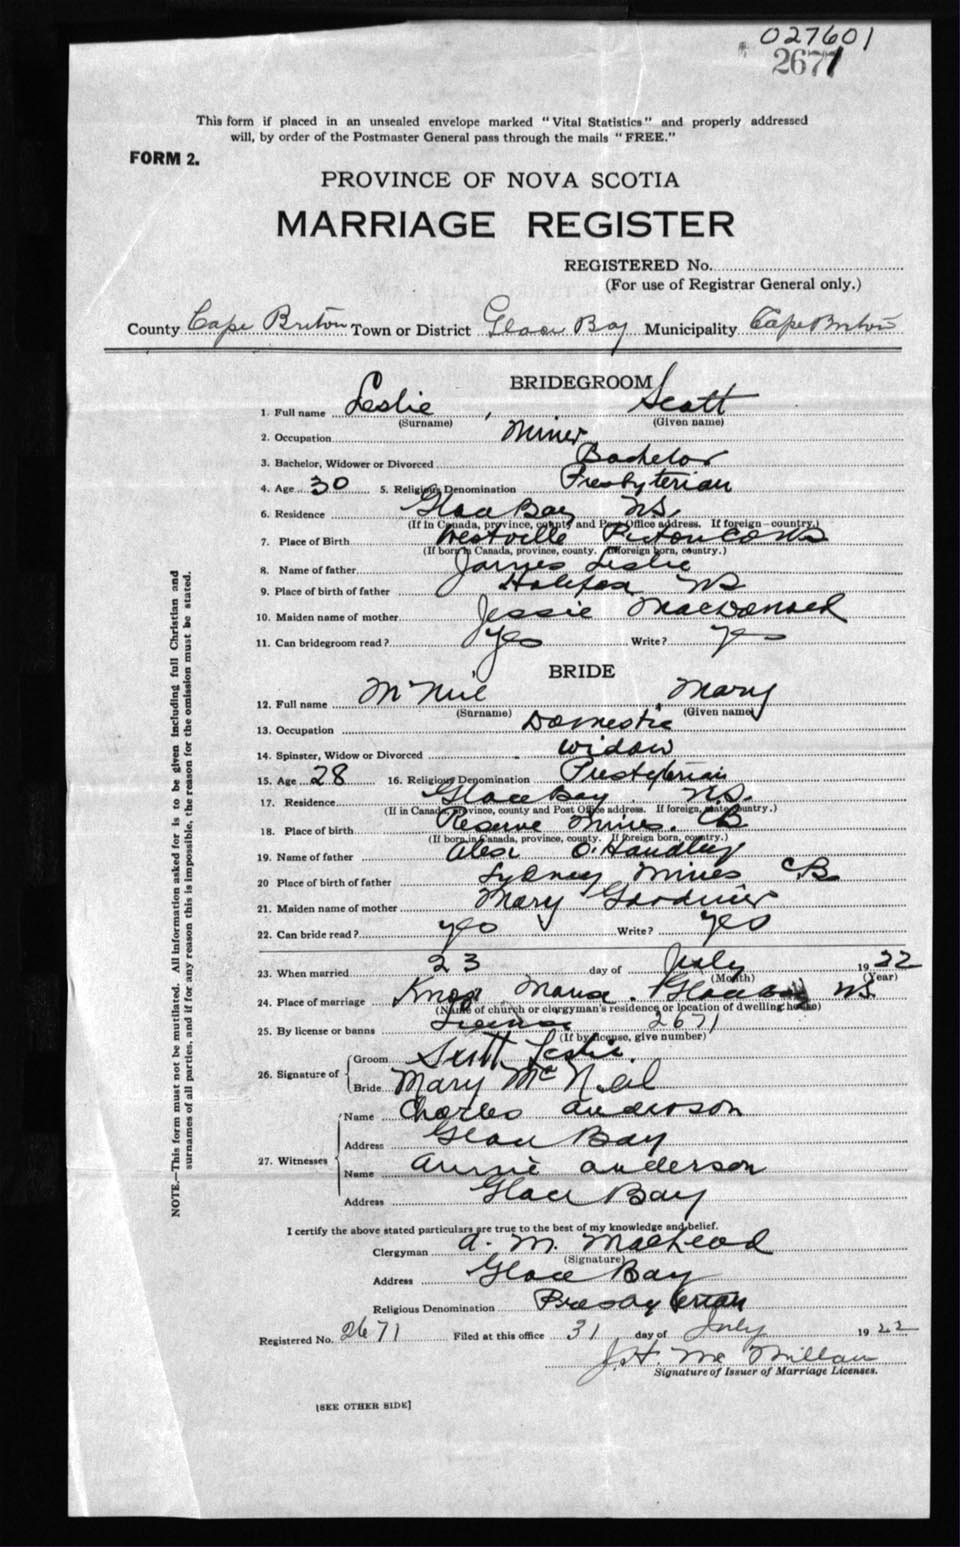 027601
2671
This form if placed in an unsealed envelope marked "Vital Statistics" and properly addressed
will, by order of the Postmaster General pass through the mails "FREE."
FORM 2.
PROVINCE OF NOVA SCOTIA
MARRIAGE REGISTER
REGISTERED No.
(For use of Registrar General only.)
County Cape Briton Town or District Glace Bay Municipality Cape Briton
BRIDEGROOM
1. Full name Leslie, Scott
(Surname) (Given name)
2. Occupation Miner
3. Bachelor, Widower or Divorced Bachelor
4. Age 30 5. Religious Denomination Presbyterian
6. Residence Glace Bay NS.
(If in Canada, province, county and Post Office address. If foreign—country.)
7. Place of Birth Westville Pictou Co NS
(If born in Canada, province, county. If foreign born, country.)
8. Name of father James Leslie
9. Place of birth of father Halifax NS
10. Maiden name of mother Jessie MacDonald
11. Can bridegroom read? Yes Write? Yes
BRIDE
12. Full name McNeil Mary
(Surname) (Given name)
13. Occupation Domestic
14. Spinster, Widow or Divorced Widow
15. Age 28 16. Religious Denomination Presbyterian
17. Residence Glace Bay N.S.
(If in Canada, province, county and Post Office address. If foreign, state country.)
18. Place of birth Reserve Mines. CB
(If born in Canada, province, county. If foreign born, country.)
19. Name of father Alex O'Handley
20 Place of birth of father Sydney Mines CB
21. Maiden name of mother Mary Gardiner
22. Can bride read? yes Write? yes
23. When married 23 day of July 1922
(Month) (Year)
24. Place of marriage Knox Manse. Glace Bay NS
(Name of church or clergyman's residence or location of dwelling house)
25. By license or banns License 2671
(If by license, give number)
26. Signature of Groom Scott Leslie.
Bride Mary McNeil
27. Witnesses Name Charles Anderson
Address Glace Bay
Name Annie Anderson
Address Glace Bay
I certify the above stated particulars are true to the best of my knowledge and belief.
Clergyman A. M. MacLeod
(Signature)
Address Glace Bay
Religious Denomination Presbyterian
Registered No. 2671 Filed at this office 31 day of July 1922
J.H. McMillan
Signature of Issuer of Marriage Licenses.
[SEE OTHER SIDE]
NOTE.—This form must not be mutilated. All information asked for is to be given including full Christian and
surnames of all parties, and if for any reason this is impossible, the reason for the omission must be stated.